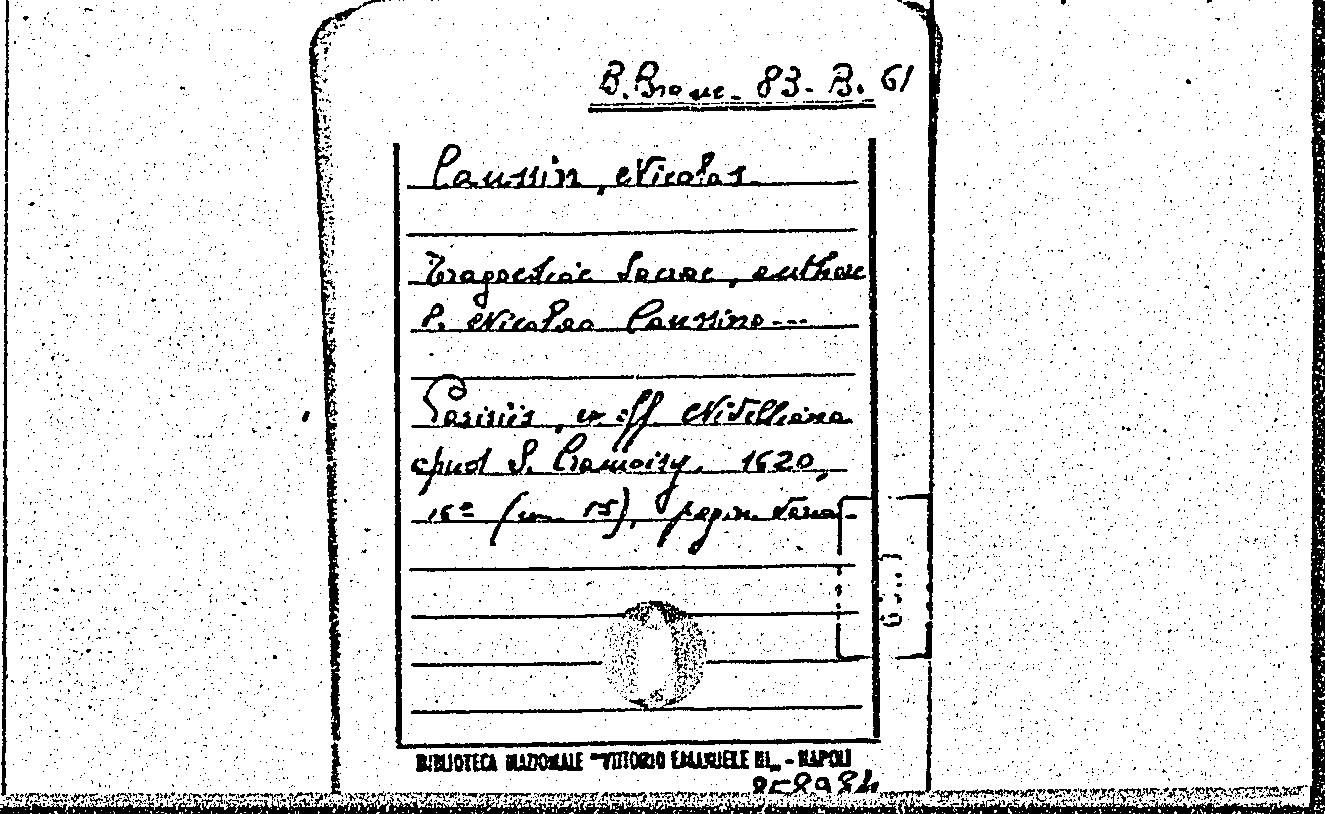 B. Branc. 83. B. 61
Caussin, Nicolas.
Tragoediae Sacrae, authore
P. Nicolao Caussino ---
Parisiis, ex off. Nivelliana
apud S. Cramoisy, 1620,
16º (cm. 15), pagin. varia.
BIBLIOTECA NAZIONALE "VITTORIO EMANUELE III„ - NAPOLI
858984